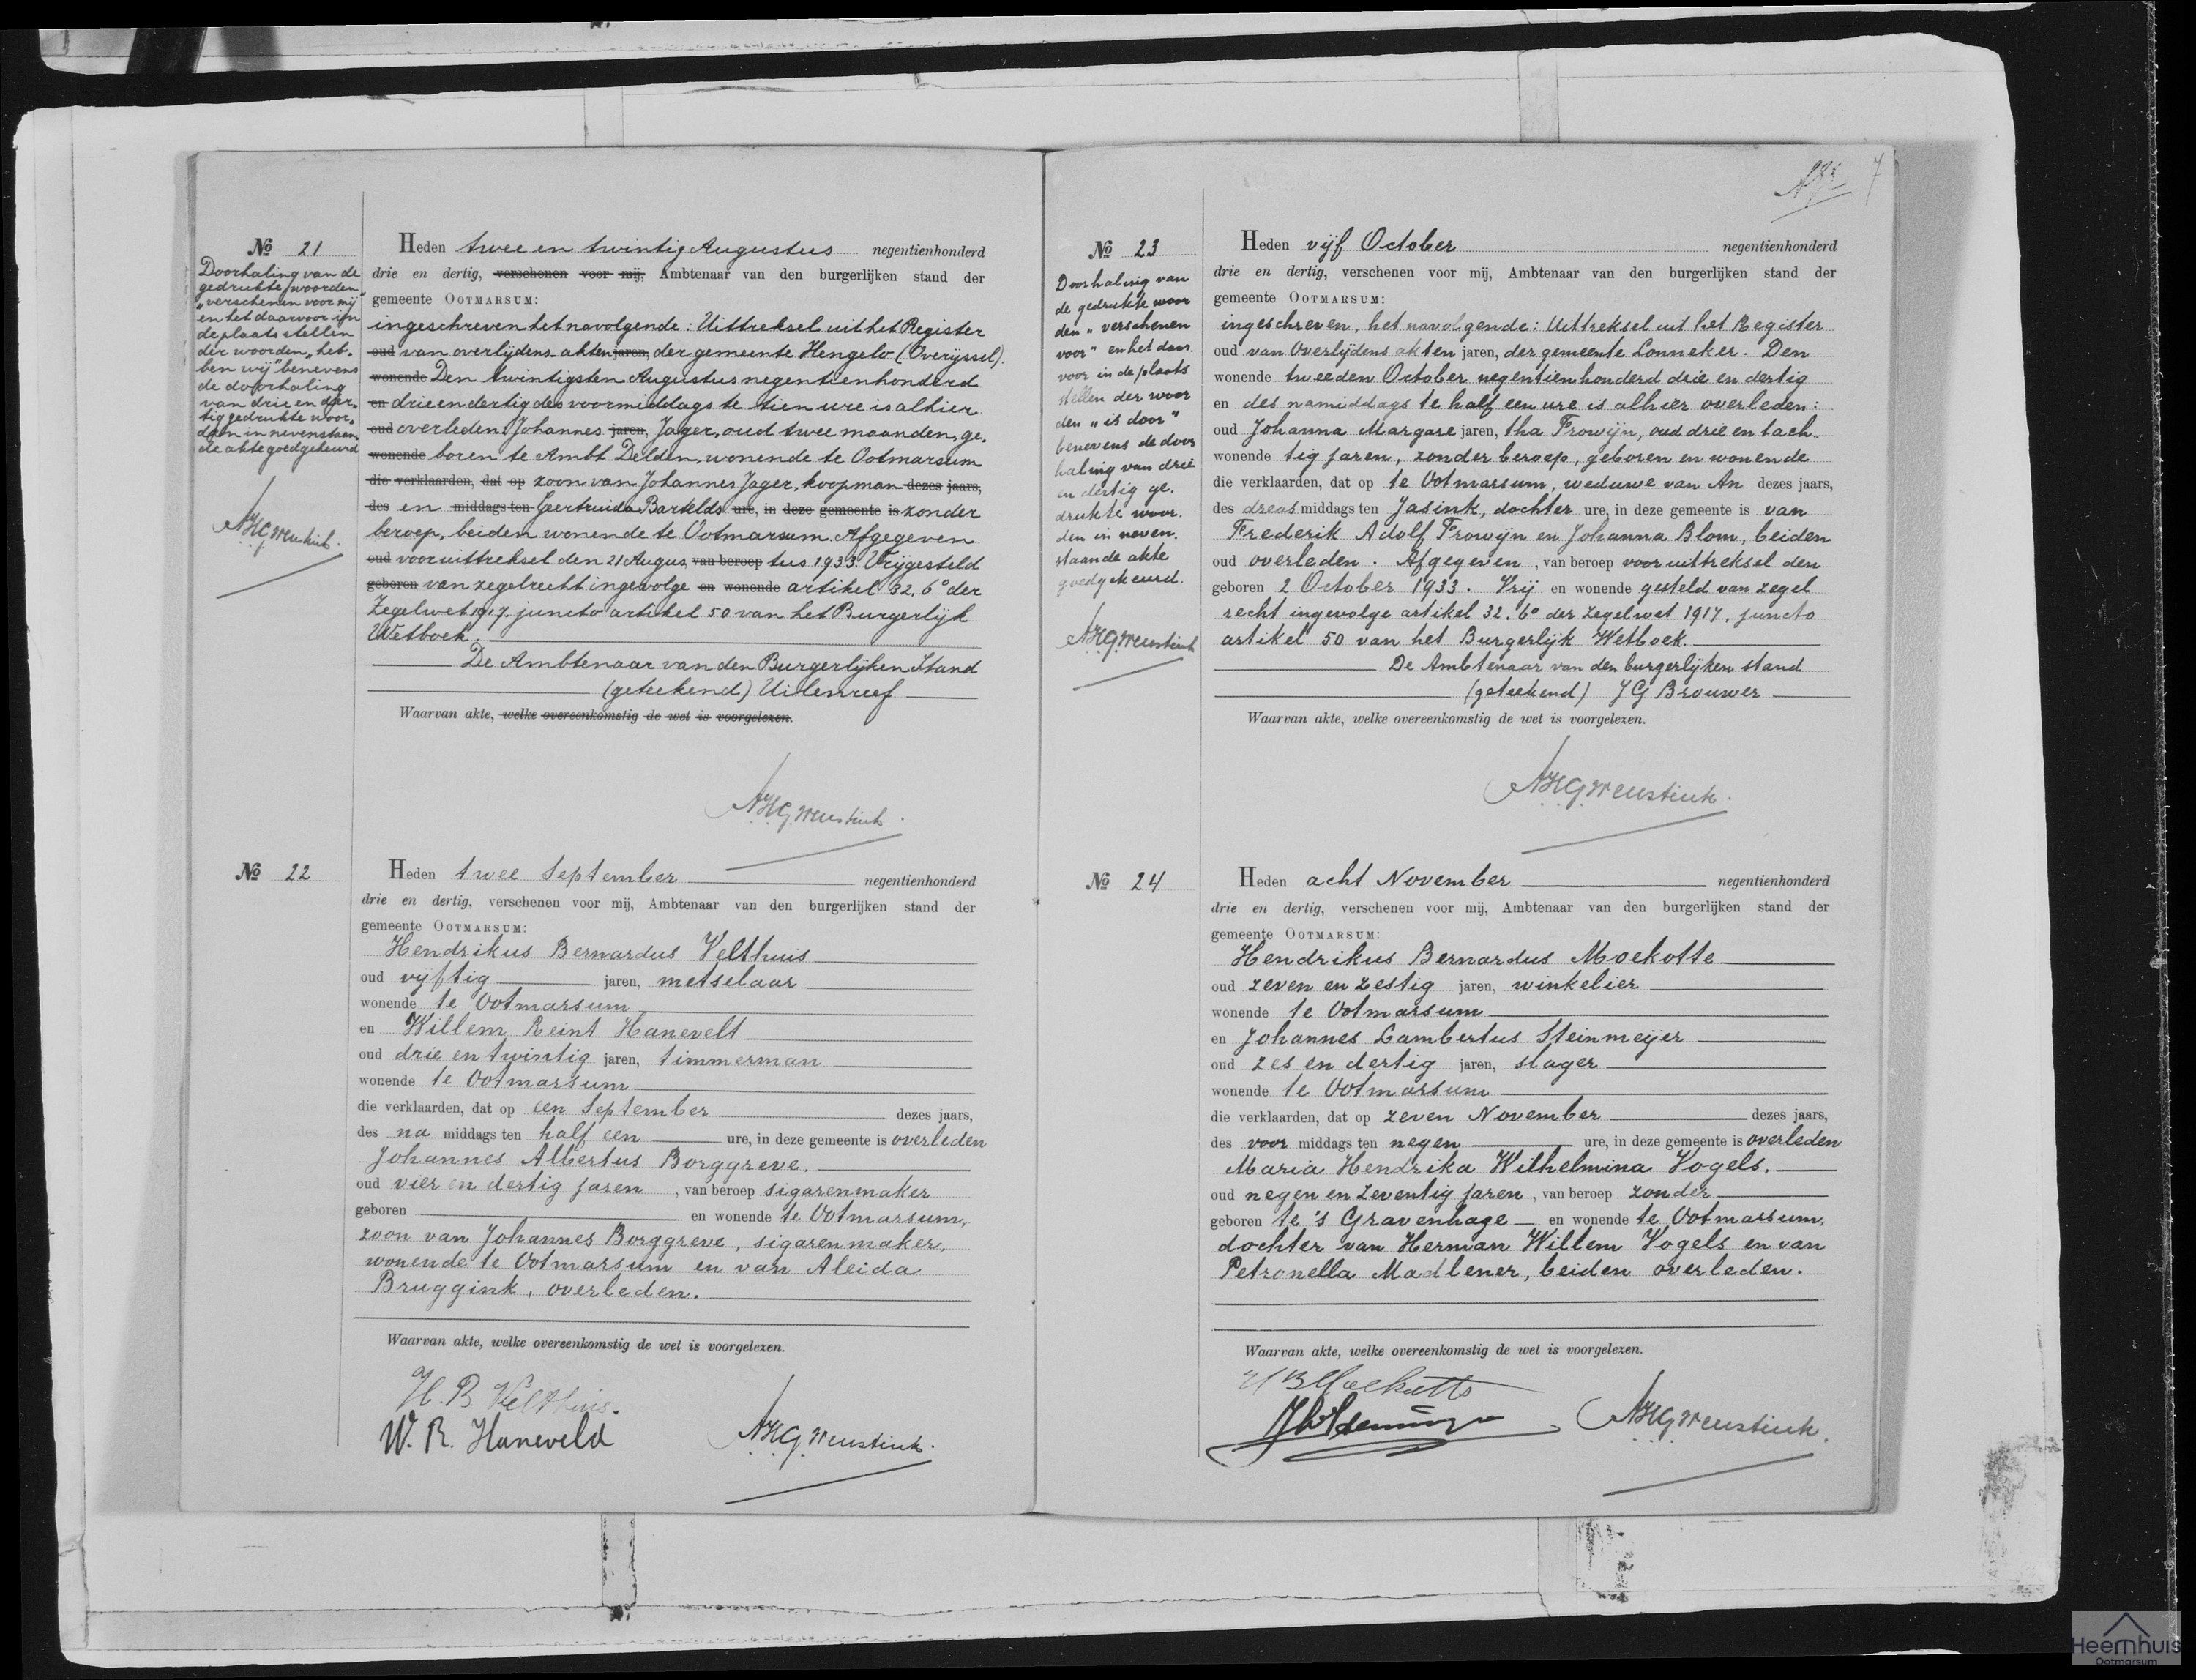 No 21
Doorhaling van de
gedrukte woorden
"verschenen voor mij"
en het daarvoor in
de plaats stellen
der woorden "heb-
ben wij" benevens
de doorhaling
van drie en der-
tig gedrukte woor-
den in nevenstaan
de akte goedgekeurd
AHG Weustink.
Heden twee en twintig Augustus negentienhonderd
drie en dertig, verschenen voor mij, Ambtenaar van den burgerlijken stand der
gemeente OOTMARSUM:
ingeschreven het navolgende: Uittreksel uit het Register
oud van overlijdens-akten jaren, der gemeente Hengelo (Overijssel).
wonende Den twintigsten Augustus negentienhonderd
en drie en dertig des voormiddags te tien ure is alhier
oud overleden Johannes jaren, Jager, oud twee maanden, ge-
wonende boren te Ambt Delden, wonende te Ootmarsum
die verklaarden, dat op zoon van Johannes Jager, koopman dezes jaars,
des en middags ten Geertruida Bartelds ure, in deze gemeente is zonder
beroep, beiden wonende te Ootmarsum. Afgegeven
oud voor uittreksel den 21 Augus van beroep tus 1933. Vrijgesteld
geboren van zegelrecht ingevolge en wonende artikel 32, 6° der
Zegelwet 1917, juncto artikel 50 van het Burgerlijk
Wetboek.
De Ambtenaar van den Burgerlijken Stand
(geteekend) Uilenreef.
Waarvan akte, welke overeenkomstig de wet is voorgelezen.
AHG Weustink.
No 22
Heden twee September negentienhonderd
drie en dertig, verschenen voor mij, Ambtenaar van den burgerlijken stand der
gemeente OOTMARSUM:
Hendrikus Bernardus Velthuis
oud vyftig jaren, metselaar
wonende te Ootmarsum
en Willem Reint Hanevelt
oud drie en twintig jaren, timmerman
wonende te Ootmarsum
die verklaarden, dat op een September dezes jaars,
des na middags ten half een ure, in deze gemeente is overleden
Johannes Albertus Borggreve.
oud vier en dertig jaren, van beroep sigarenmaker
geboren en wonende te Ootmarsum,
zoon van Johannes Borggreve, sigarenmaker,
wonende te Ootmarsum en van Aleida
Bruggink, overleden.
Waarvan akte, welke overeenkomstig de wet is voorgelezen.
H. B. Velthuis.
W. R. Haneveld
AHG Weustink.
7
No 23
Doorhaling van
de gedrukte woor
den "verschenen
voor" en het daar-
voor in de plaats
stellen der woor
den "is door"
benevens de door
haling van drie
en dertig ge-
drukte woor-
den in neven-
staande akte
goedgekeurd.
AHG Weustink
Heden vijf October negentienhonderd
drie en dertig, verschenen voor mij, Ambtenaar van den burgerlijken stand der
gemeente OOTMARSUM:
ingeschreven, het navolgende: Uittreksel uit het Register
oud van Overlijdens akten jaren, der gemeente Lonneker. Den
wonende tweeden October negentienhonderd drie en dertig
en des namiddags te half een ure is alhier overleden:
oud Johanna Margare jaren, tha Frowijn, oud drie en tach-
wonende tig jaren, zonder beroep, geboren en wonende
die verklaarden, dat op te Ootmarsum, weduwe van An dezes jaars,
des dreas middags ten Jasink, dochter ure, in deze gemeente is van
Frederik Adolf Frowijn en Johanna Blom, beiden
oud overleden. Afgegeven, van beroep voor uittreksel den
geboren 2 October 1933. Vrij en wonende gesteld van zegel
recht ingevolge artikel 32. 6° der Zegelwet 1917, juncto
artikel 50 van het Burgerlijk Wetboek.
De Ambtenaar van den burgerlijken stand
(geteekend) J G Brouwer
Waarvan akte, welke overeenkomstig de wet is voorgelezen.
AHG Weustink.
No 24
Heden acht November negentienhonderd
drie en dertig, verschenen voor mij, Ambtenaar van den burgerlijken stand der
gemeente OOTMARSUM:
Hendrikus Bernardus Moekotte
oud zeven en zestig jaren, winkelier
wonende te Ootmarsum
en Johannes Lambertus Steinmeijer
oud zes en dertig jaren, slager
wonende te Ootmarsum
die verklaarden, dat op zeven November dezes jaars,
des voor middags ten negen ure, in deze gemeente is overleden
Maria Hendrika Wilhelmina Vogels.
oud negen en zeventig jaren, van beroep zonder
geboren te 's Gravenhage en wonende te Ootmarsum,
dochter van Herman Willem Vogels en van
Petronella Madlener, beiden overleden.
Waarvan akte, welke overeenkomstig de wet is voorgelezen.
H B Moekotte
AHG Weustink.
Heemhuis
Ootmarsum